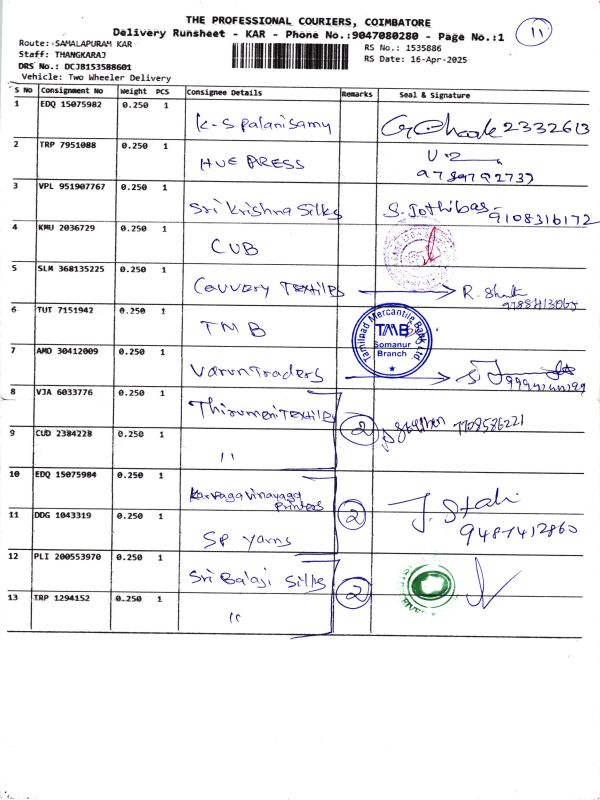 THE PROFESSIONAL COURIERS, COIMBATORE
Delivery Runsheet - KAR - Phone No.:9047080280 - Page No.:1
11
Route: SAMALAPURAM KAR
Staff: THANGKARAJ
DRS No.: DCJB153588601
Vehicle: Two Wheeler Delivery
RS No.: 1535886
RS Date: 16-Apr-2025
S No Consignment No Weight PCS Consignee Details Remarks Seal & Signature
1 EDQ 15075982 0.250 1 K.S Palanisamy 2332613
2 TRP 7951088 0.250 1 HUE PRESS
9789792737
3 VPL 951907767 0.250 1 Sri Krishna Silks S. Jothibas 9108316172
4 KMU 2036729 0.250 1 CUB
5 SLM 368135225 0.250 1 Cauvery Textiles R.
6 TUT 7151942 0.250 1 TMB
Tamilnad Mercantile Bank Ltd.
TMB
Somanur
Branch
7 AMD 30412009 0.250 1 Varun Traders S.
8 VJA 6033776 0.250 1 Thirumeni Textiles
2 Stephen 7708586221
9 CUD 2384228 0.250 1 "
10 EDQ 15075984 0.250 1 Karpaga vinayaga Printers
2 J.
9487412860
11 DDG 1043319 0.250 1 SP Yarns
12 PLI 200553970 0.250 1 Sri Balaji Silks
2
13 TRP 1294152 0.250 1 "